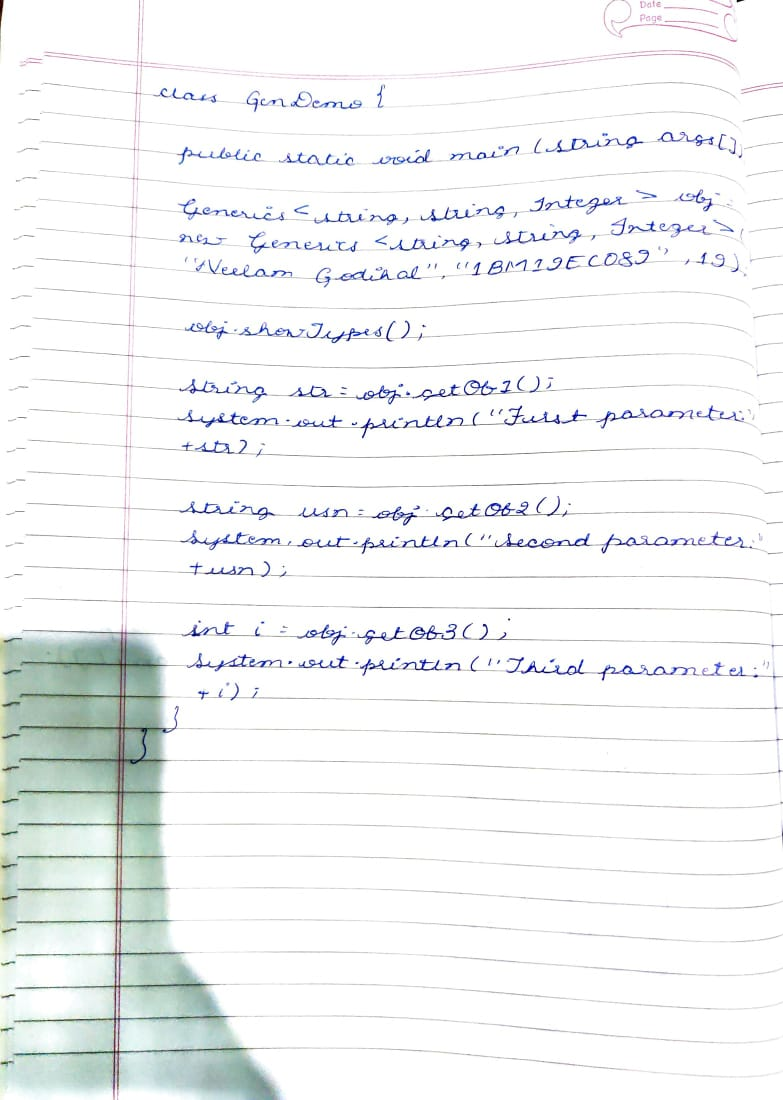 Date
Page
class GenDemo {
public static void main (string args[],
Generics <string, string, Integer > obj =
new Generics <string, string, Integer >(
"Neelam Godihal", "1BM19EC089", 19).
obj.showTypes();
string str = obj.getOb1();
system.out.println("First parameter:"
+str);
string usn = obj.getOb2();
system.out.println("second parameter:"
+usn);
int i = obj.getOb3();
system.out.println("Third parameter:"
+i);
}
}